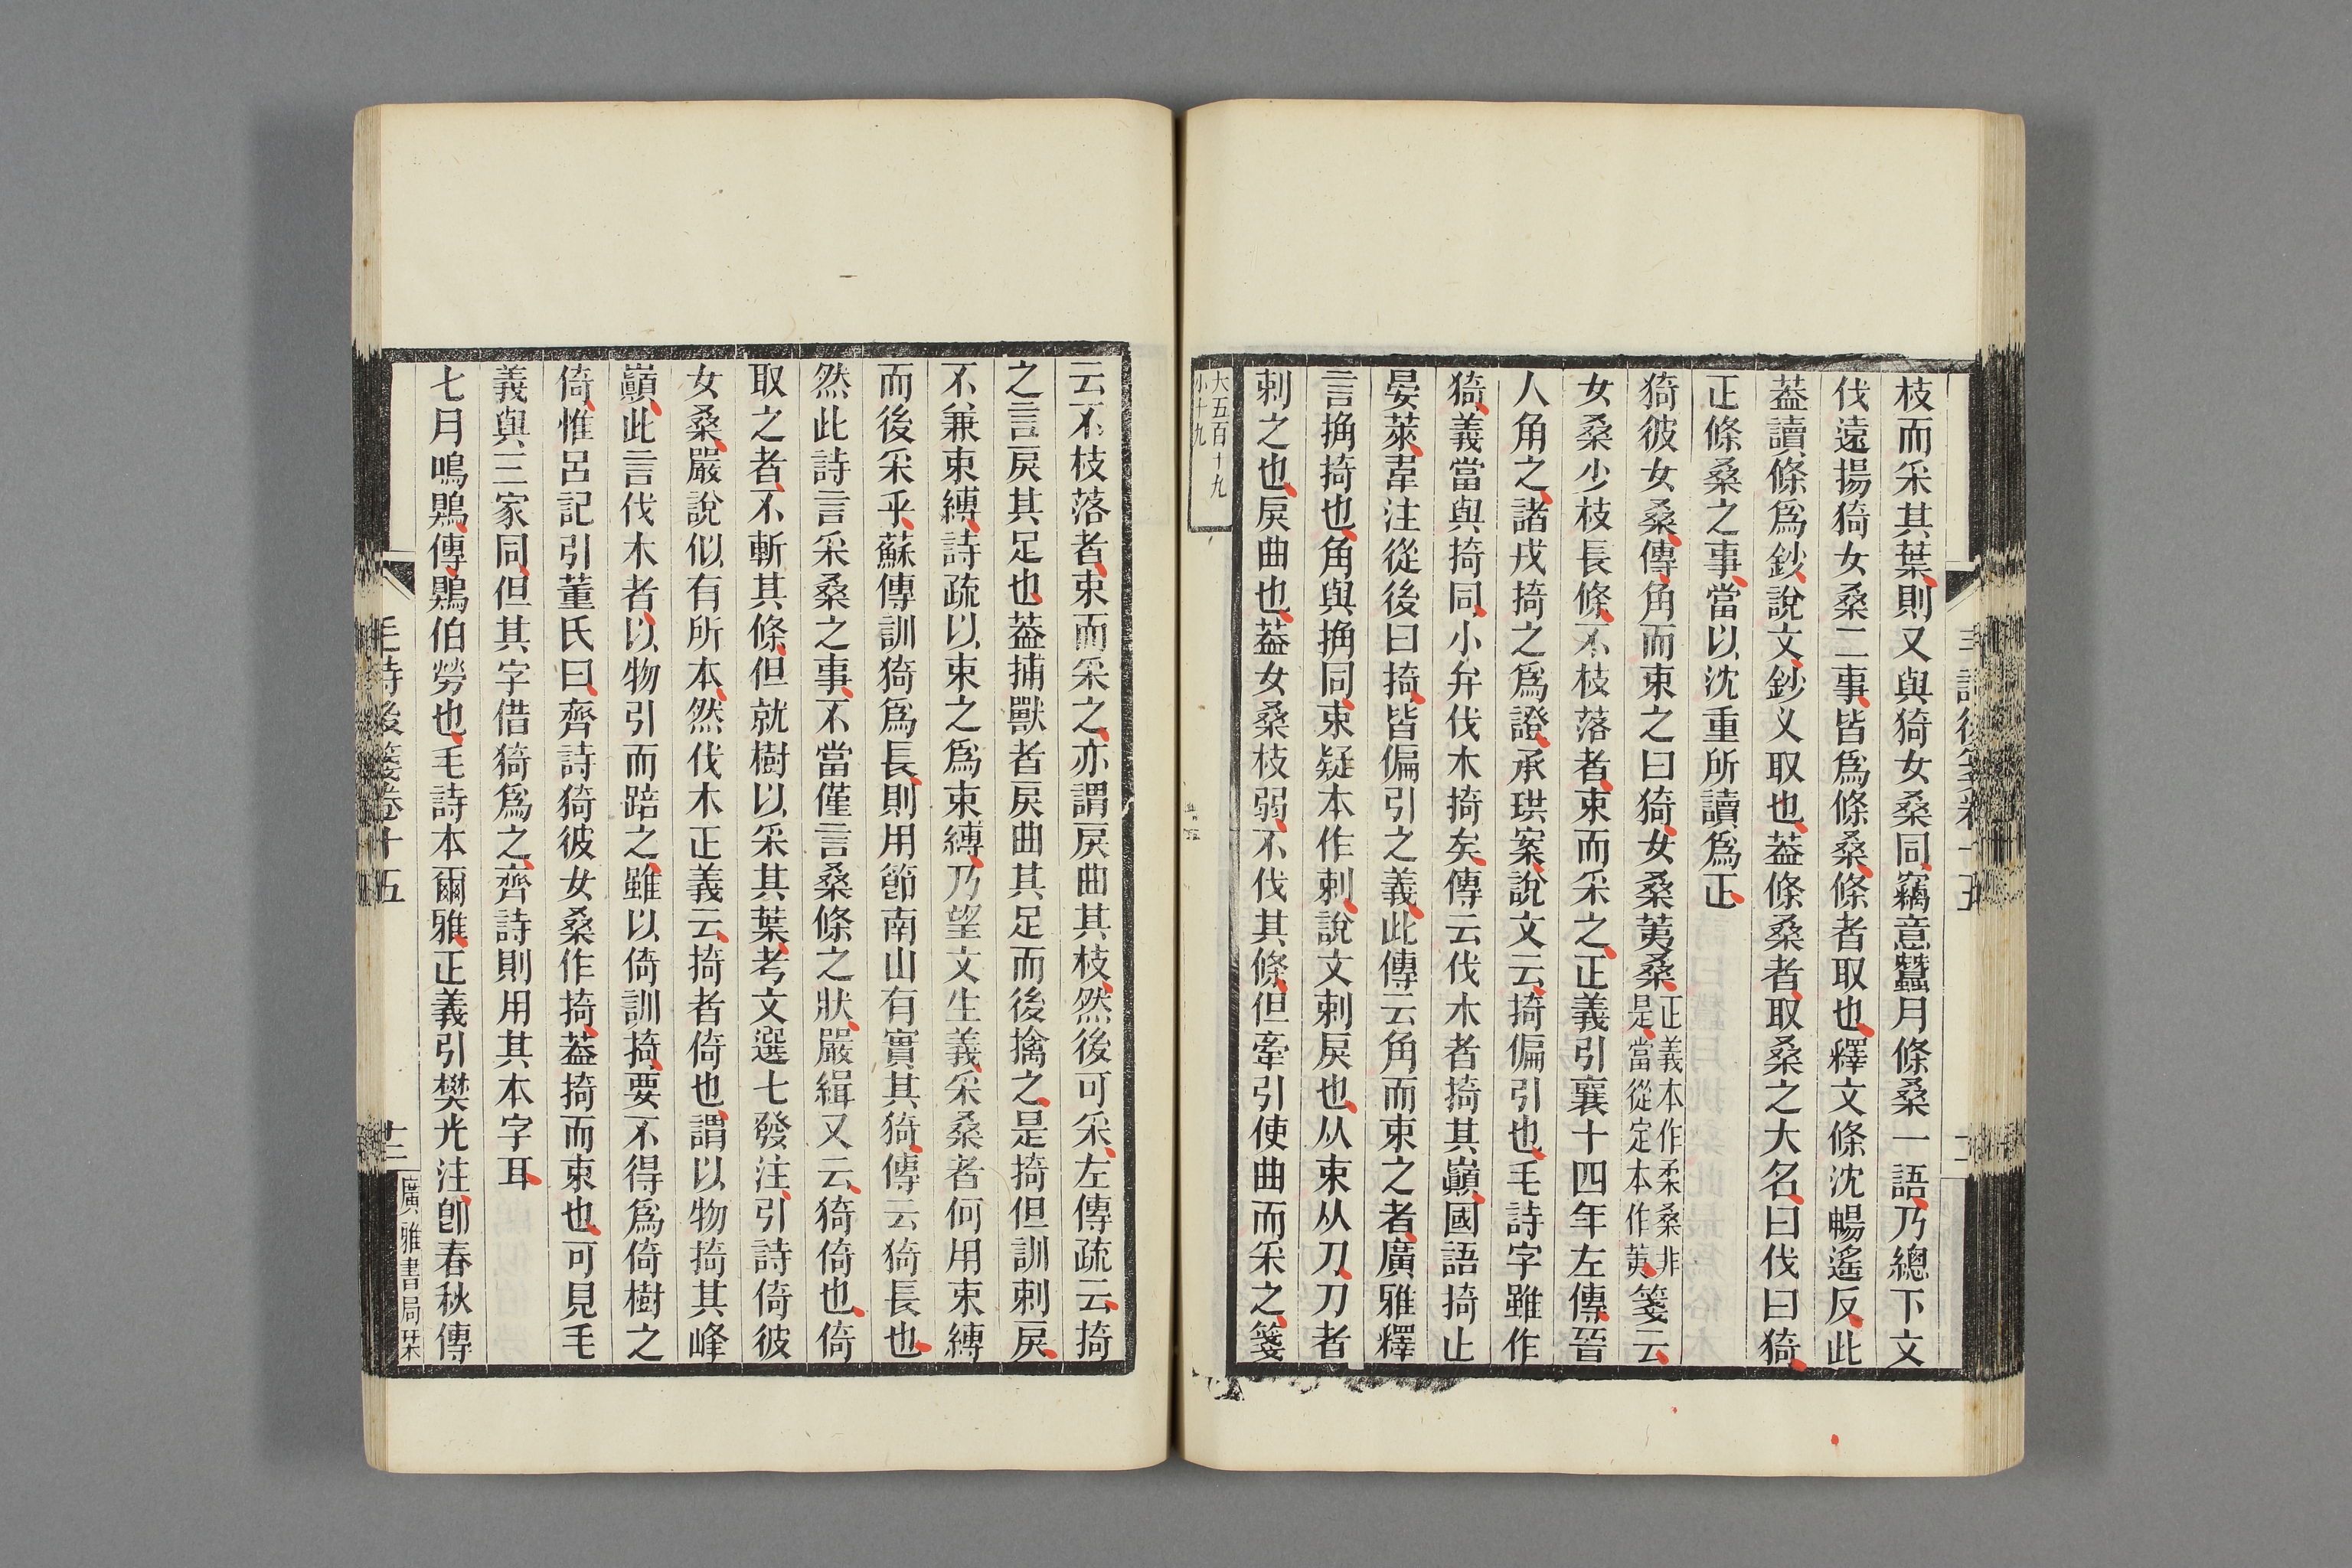 枝而采其葉則又與猗女桑同竊意蠶月條桑一語乃總下文
伐遠揚猗女桑二事皆爲條桑條者取也釋文條沈暢遙反此
葢讀條爲鈔說文鈔㕚取也葢條桑者取桑之大名曰伐曰猗
正條桑之事當以沈重所讀爲正
猗彼女桑傳角而束之曰猗女桑荑桑正義本作柔桑非是當從定本作荑箋云
女桑少枝長條不枝落者束而采之正義引襄十四年左傳晉
人角之諸戎掎之爲證承珙案說文云掎偏引也毛詩字雖作
猗義當與掎同小弁伐木掎矣傳云伐木者掎其巔國語掎止
晏萊韋注從後曰掎皆偏引之義此傳云角而束之者廣雅釋
言捔掎也角與捔同束疑本作剌說文剌戾也从束从刀刀者
剌之也戾曲也葢女桑枝弱不伐其條但牽引使曲而采之箋
大五百十九
小十九
云不枝落者束而采之亦謂戾曲其枝然後可采左傳疏云掎
之言戾其足也葢捕獸者戾曲其足而後擒之是掎但訓剌戾
不兼束縛詩疏以束之爲束縛乃望文生義采桑者何用束縛
而後采乎蘇傳訓猗爲長則用節南山有實其猗傳云猗長也
然此詩言采桑之事不當僅言桑條之狀嚴緝又云猗倚也倚
取之者不斬其條但就樹以采其葉考文選七發注引詩倚彼
女桑嚴說似有所本然伐木正義云掎者倚也謂以物掎其峰
巔此言伐木者以物引而踣之雖以倚訓掎要不得爲倚樹之
倚惟呂記引董氏曰齊詩猗彼女桑作掎葢掎而束也可見毛
義與三家同但其字借猗爲之齊詩則用其本字耳
七月鳴鵙傳鵙伯勞也毛詩本爾雅正義引樊光注卽春秋傳
毛詩後箋卷十五
廣雅書局栞